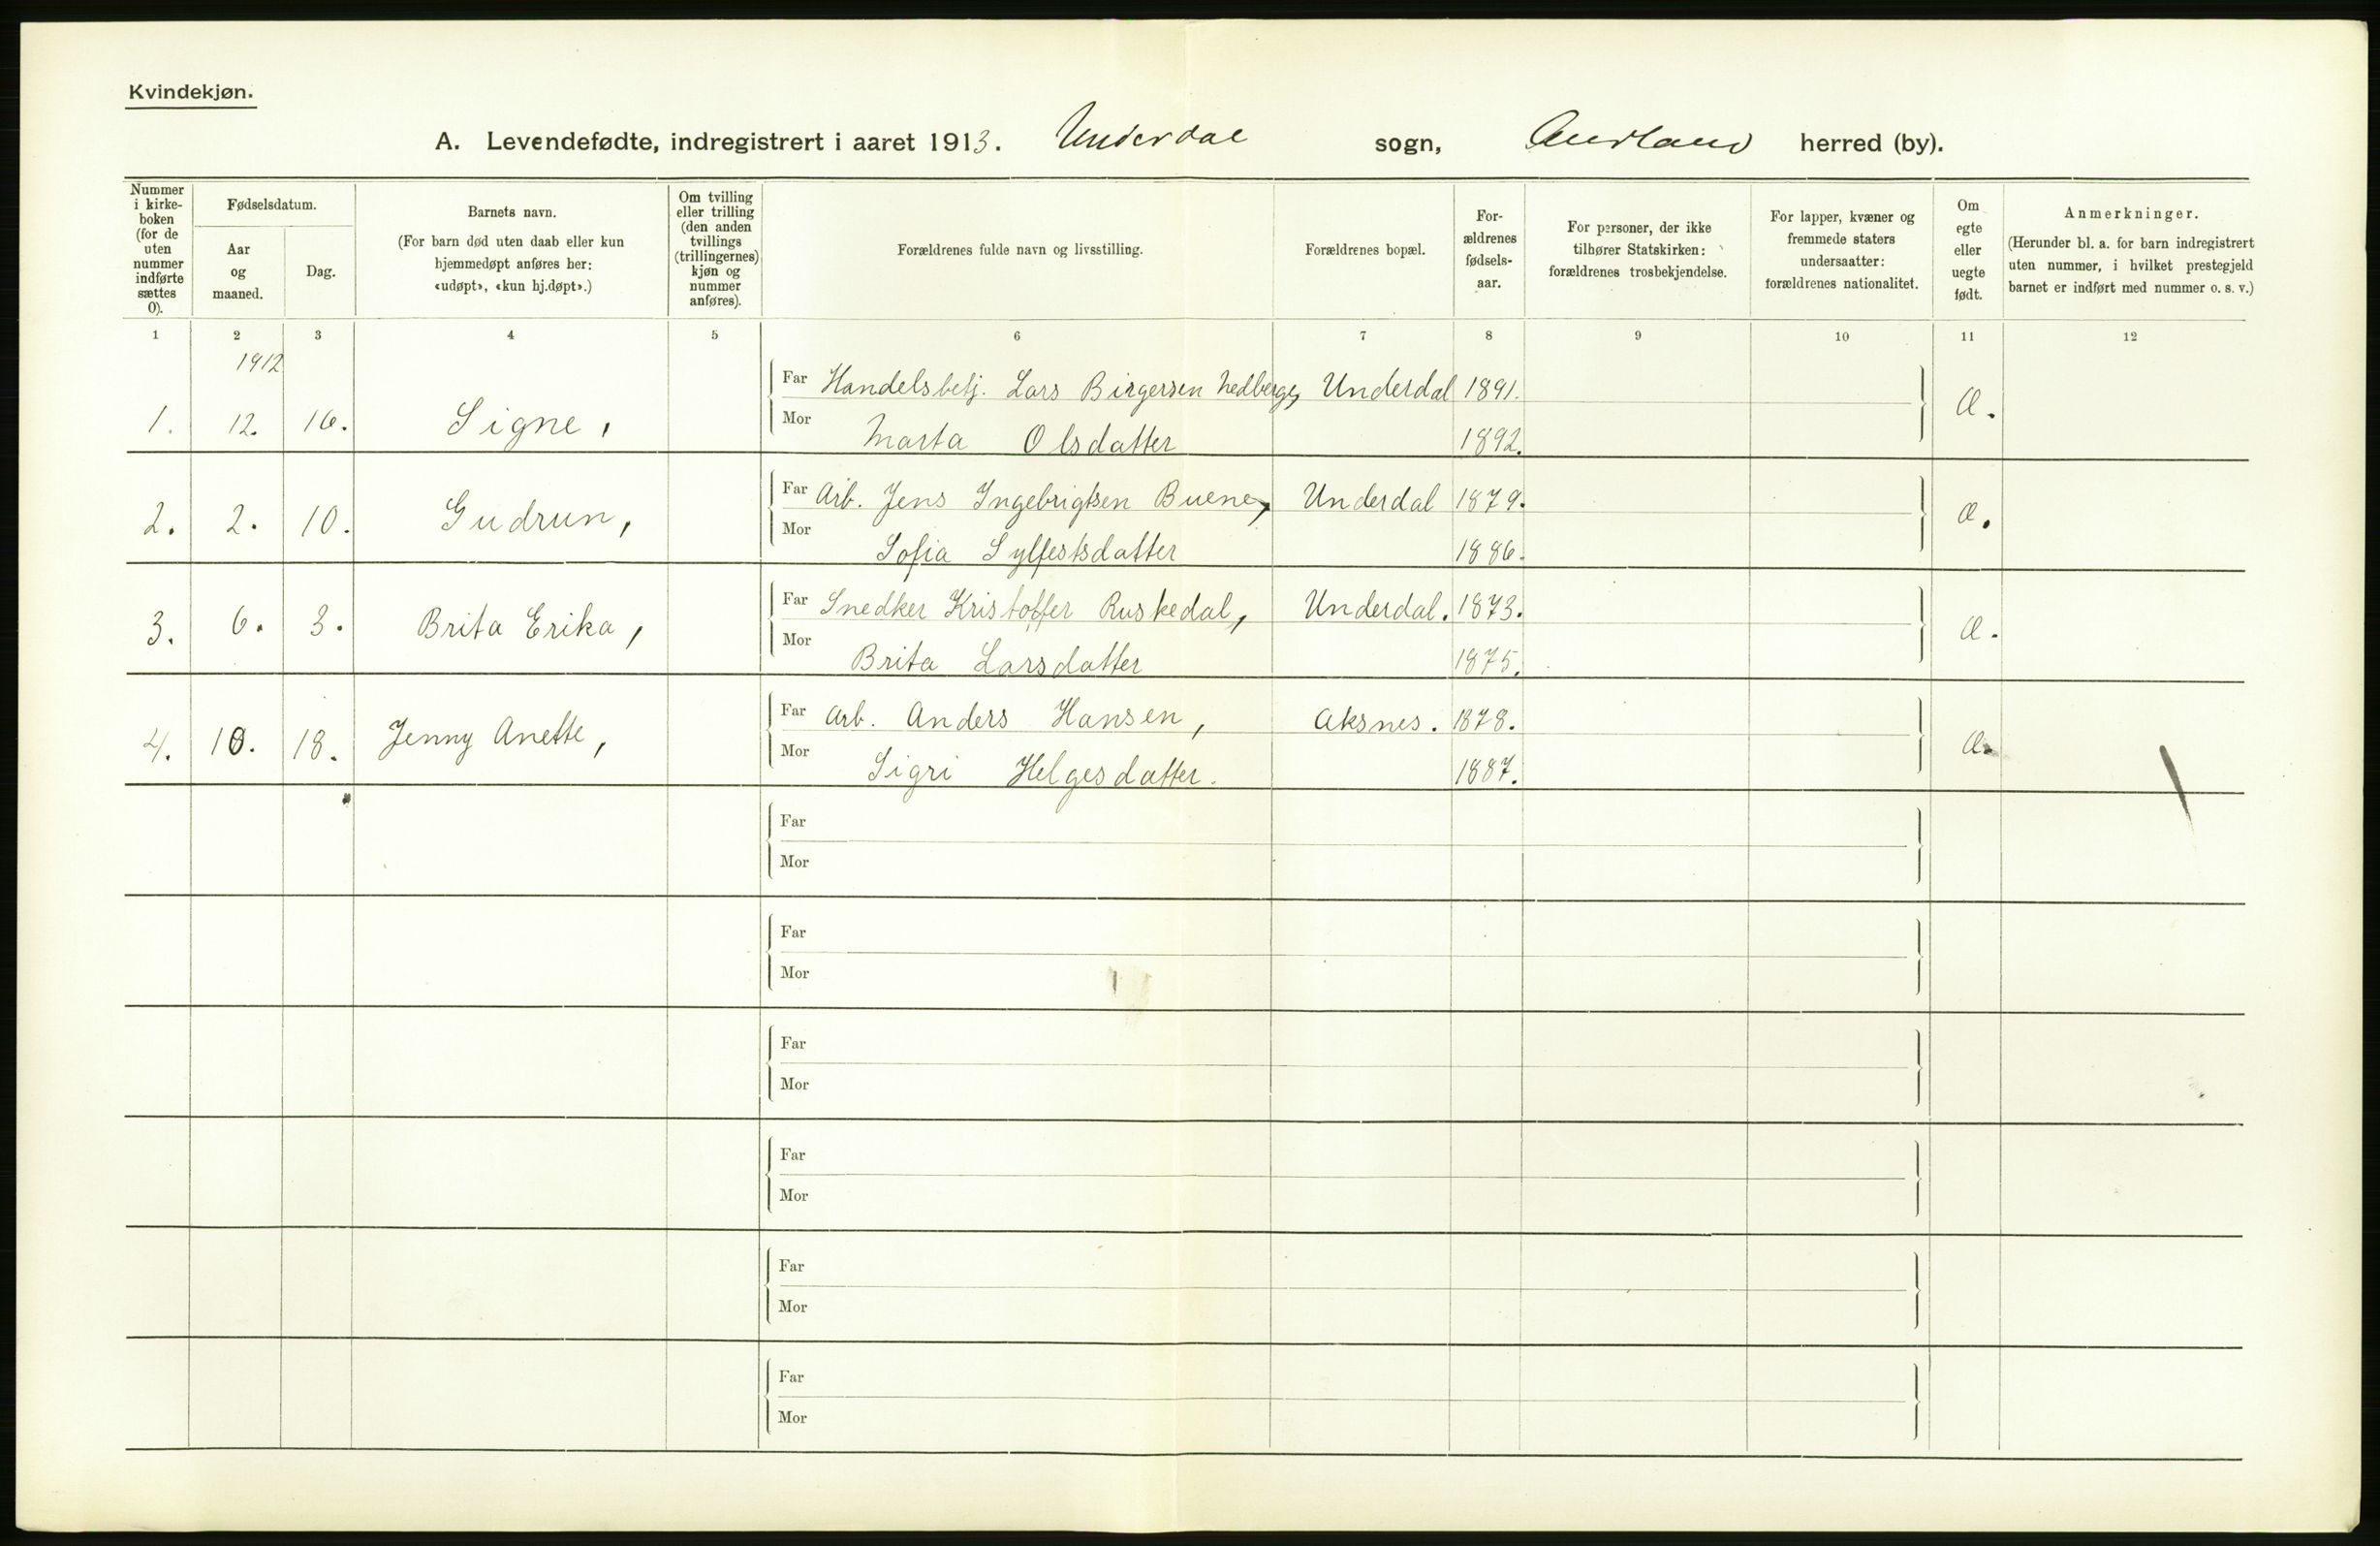 Kvindekjøn.
A. Levendefødte, indregistrert i aaret 1913. Underdal sogn, Aurland herred (by).
Nummer i kirke- boken (for de uten nummer indførte sættes 0).
Fødselsdatum.
Aar og maaned.
Dag.
Barnets navn.
(For barn død uten daab eller kun hjemmedøpt anføres her: «udøpt», «kun hj.døpt».)
Om tvilling eller trilling (den anden tvillings (trillingernes) kjøn og nummer anføres).
Forældrenes fulde navn og livsstilling.
Forældrenes bopæl.
For- ældrenes fødsels- aar.
For personer, der ikke tilhører Statskirken: forældrenes trosbekjendelse.
For lapper, kvæner og fremmede staters undersaatter: forældrenes nationalitet.
Om egte eller uegte født.
Anmerkninger.
(Herunder bl. a. for barn indregistrert uten nummer, i hvilket prestegjeld barnet er indført med nummer o. s. v.)
1 2 3 4 5 6 7 8 9 10 11 12
1912
Far Handelsbetj. Lars Birgersen Hedberg, Underdal 1891.
1. 12. 16. Signe, Æ.
Mor Marta Olsdatter 1892.
Far Arb. Jens Ingebrigtsen Buene, Underdal 1879.
2. 2. 10. Gudrun, Æ.
Mor Sofia Sylfestsdatter 1886.
Far Snedker Kristoffer Ruskedal, Underdal. 1873.
3. 6. 3. Brita Erika, Æ.
Mor Brita Larsdatter 1875.
Far Arb. Anders Hansen, Aksnes. 1878.
4. 10. 18. Jenny Anette, Æ.
Mor Sigri Helgesdatter. 1887.
Far
Mor
Far
Mor
Far
Mor
Far
Mor
Far
Mor
Far
Mor